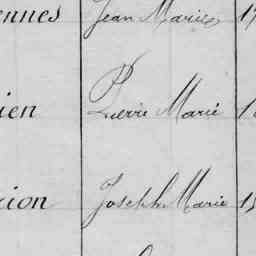 ennes Jean Marie 17
ien Pierre Marie 1
rion Joseph Marie 15